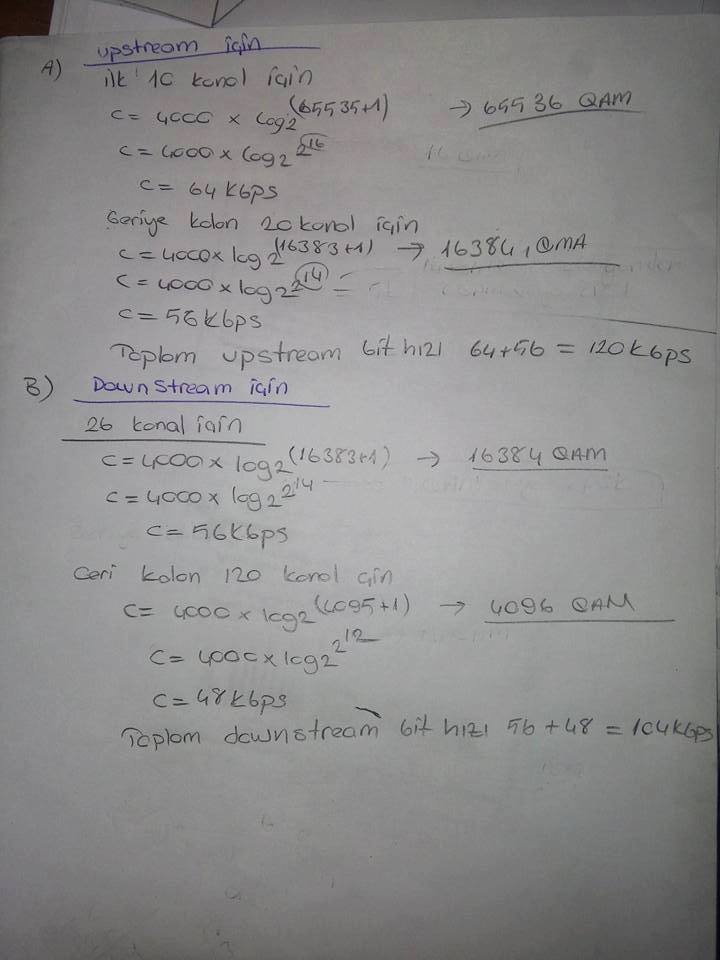 A) upstream için
ilk 10 kanal için
C = 4000 x log2^(65535+1) → 65536 QAM
C = 4000 x log2 2^16
C = 64 Kbps
Geriye kalan 20 kanal için
C = 4000 x log2^(16383+1) → 16384, QMA
C = 4000 x log2 2^14 =
C = 56 Kbps
Toplam upstream bit hızı 64+56 = 120 Kbps
B) DownStream için
26 kanal için
C = 4000 x log2^(16383+1) → 16384 QAM
C = 4000 x log2 2^14
C = 56 Kbps
Geri kalan 120 kanal için
C = 4000 x log2^(4095+1) → 4096 QAM
C = 4000 x log2 2^12
C = 48 Kbps
Toplam downstream bit hızı 56 + 48 = 104 Kbps